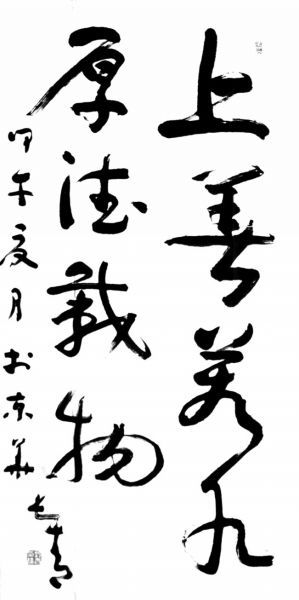 上善若水
厚德载物
甲午夏月于京华长青